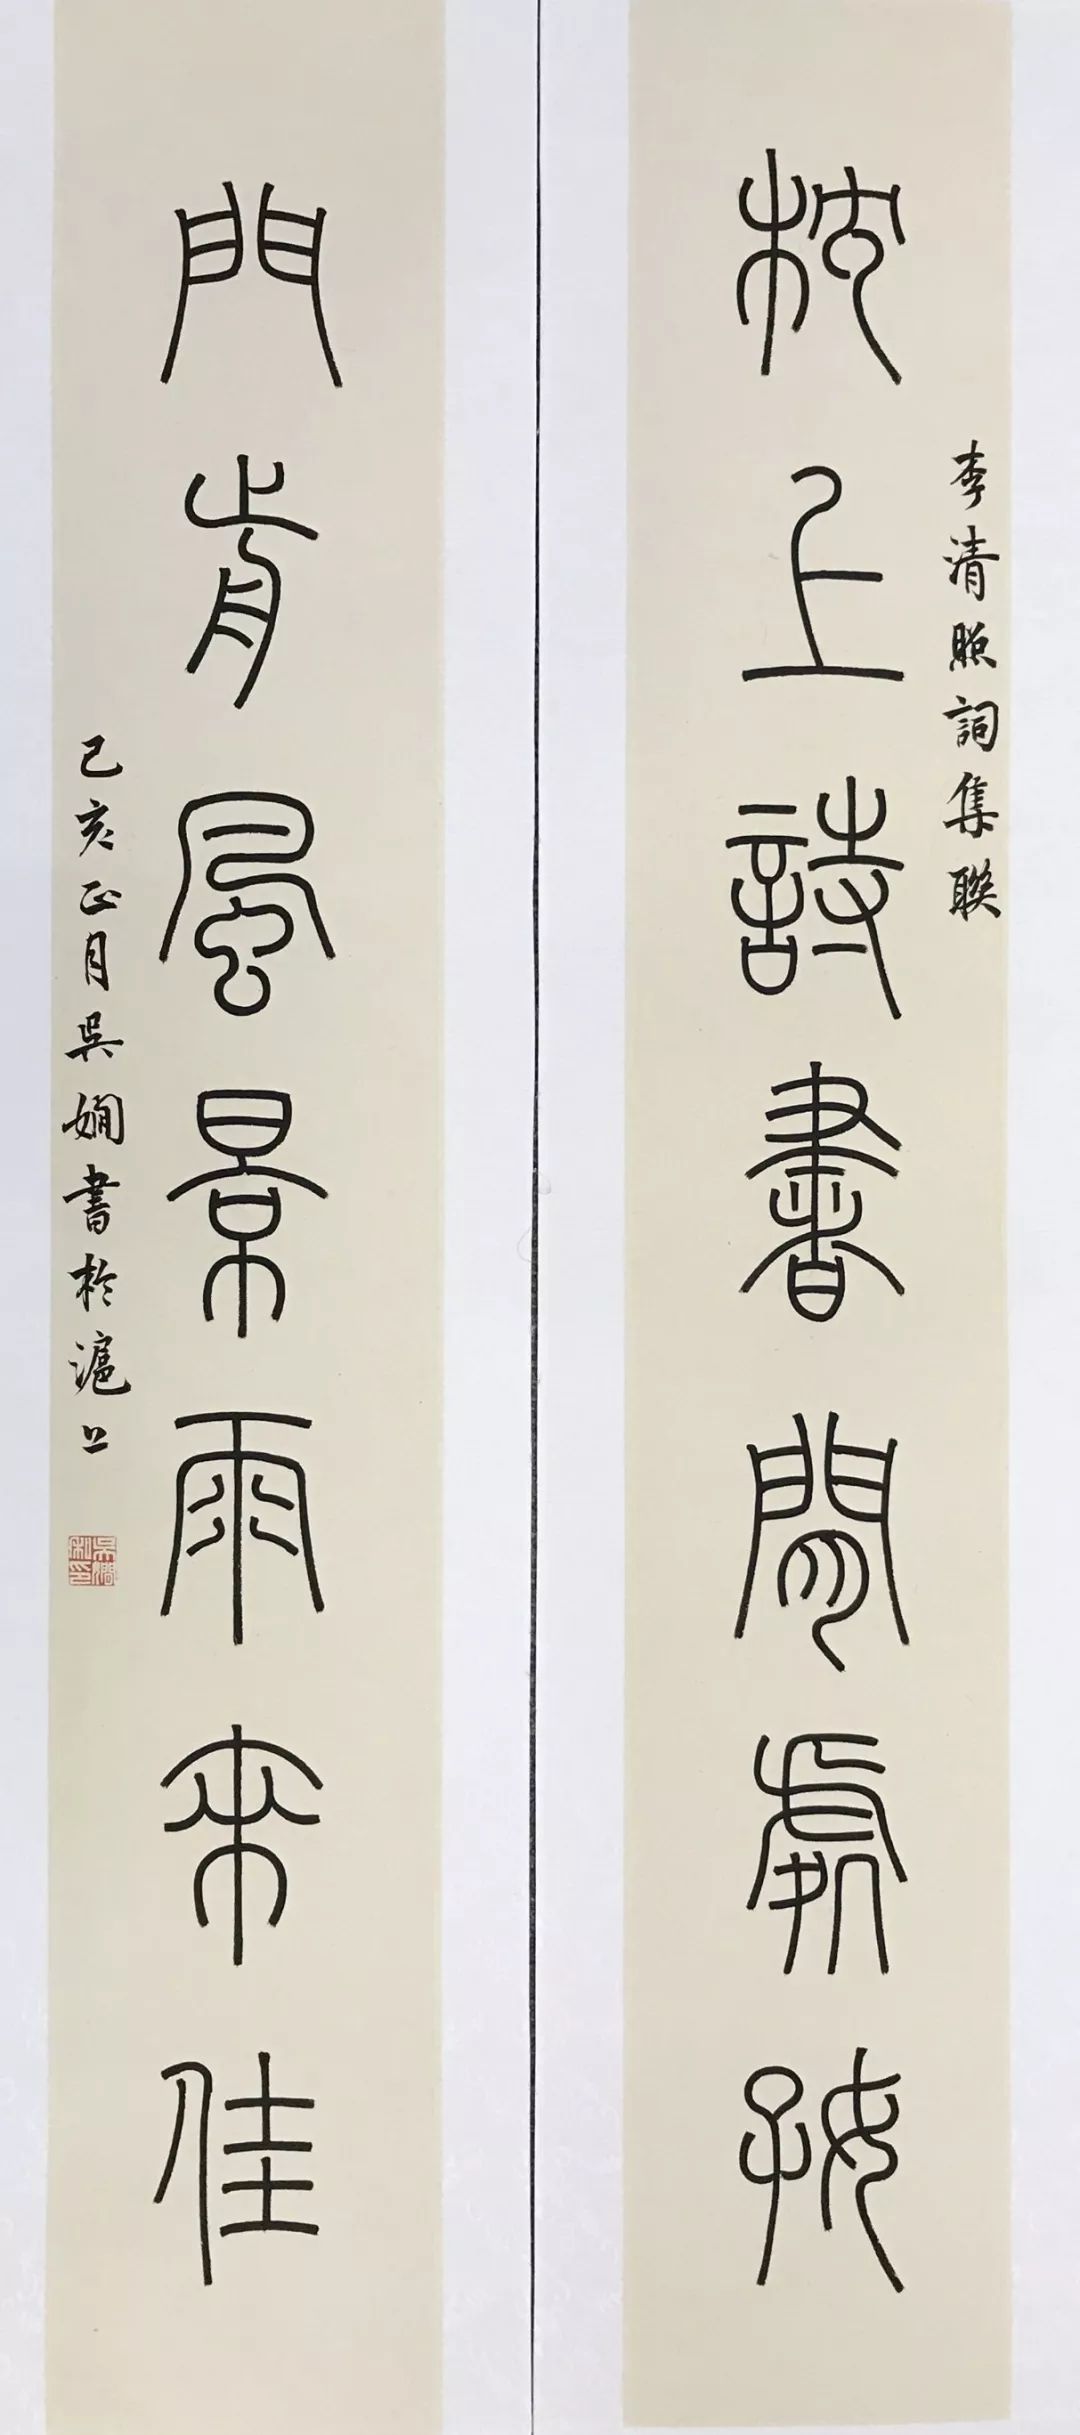 李清照詞集聯
枕上詩書閒處好
門前風景雨來佳
己亥正月吳嫺書於滬上